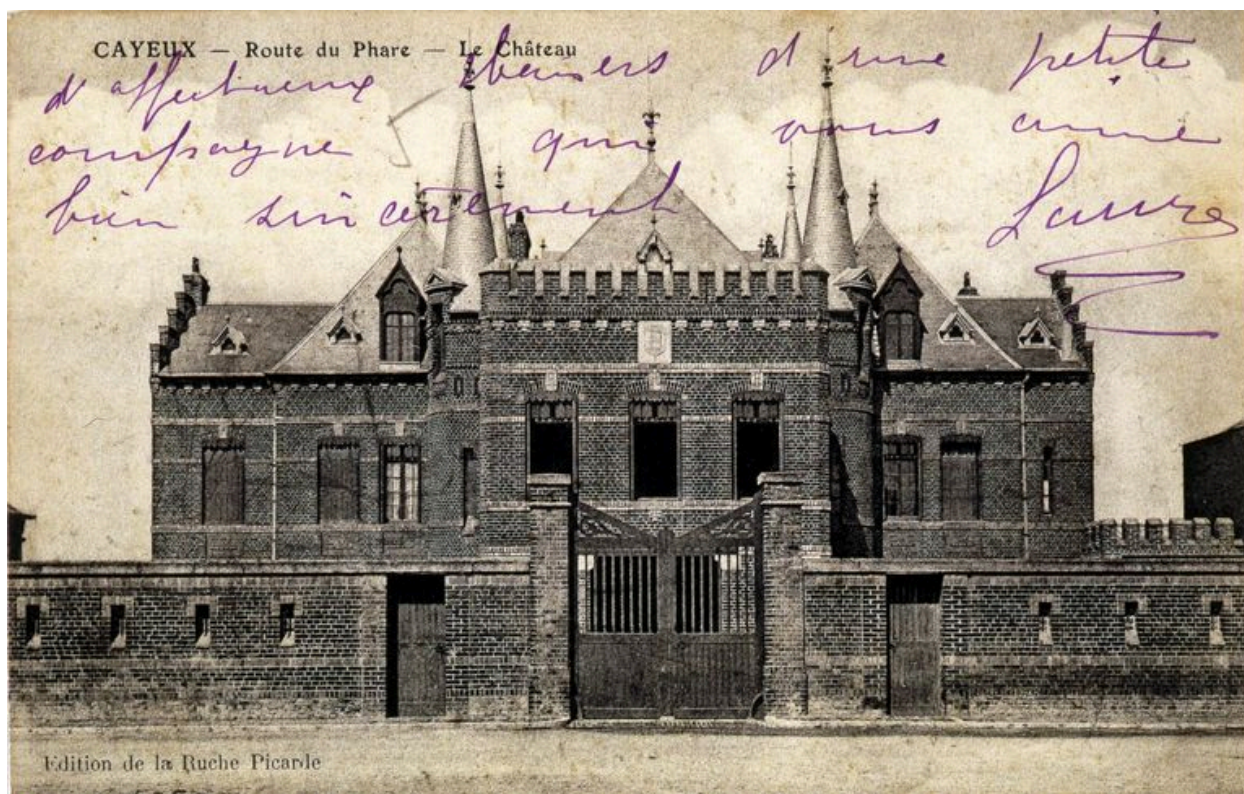 CAYEUX — Route du Phare — Le Château
d'affectueux baisers d'une petite
compagne qui vous aime
bien sincèrement Laure
Edition de la Ruche Picarde